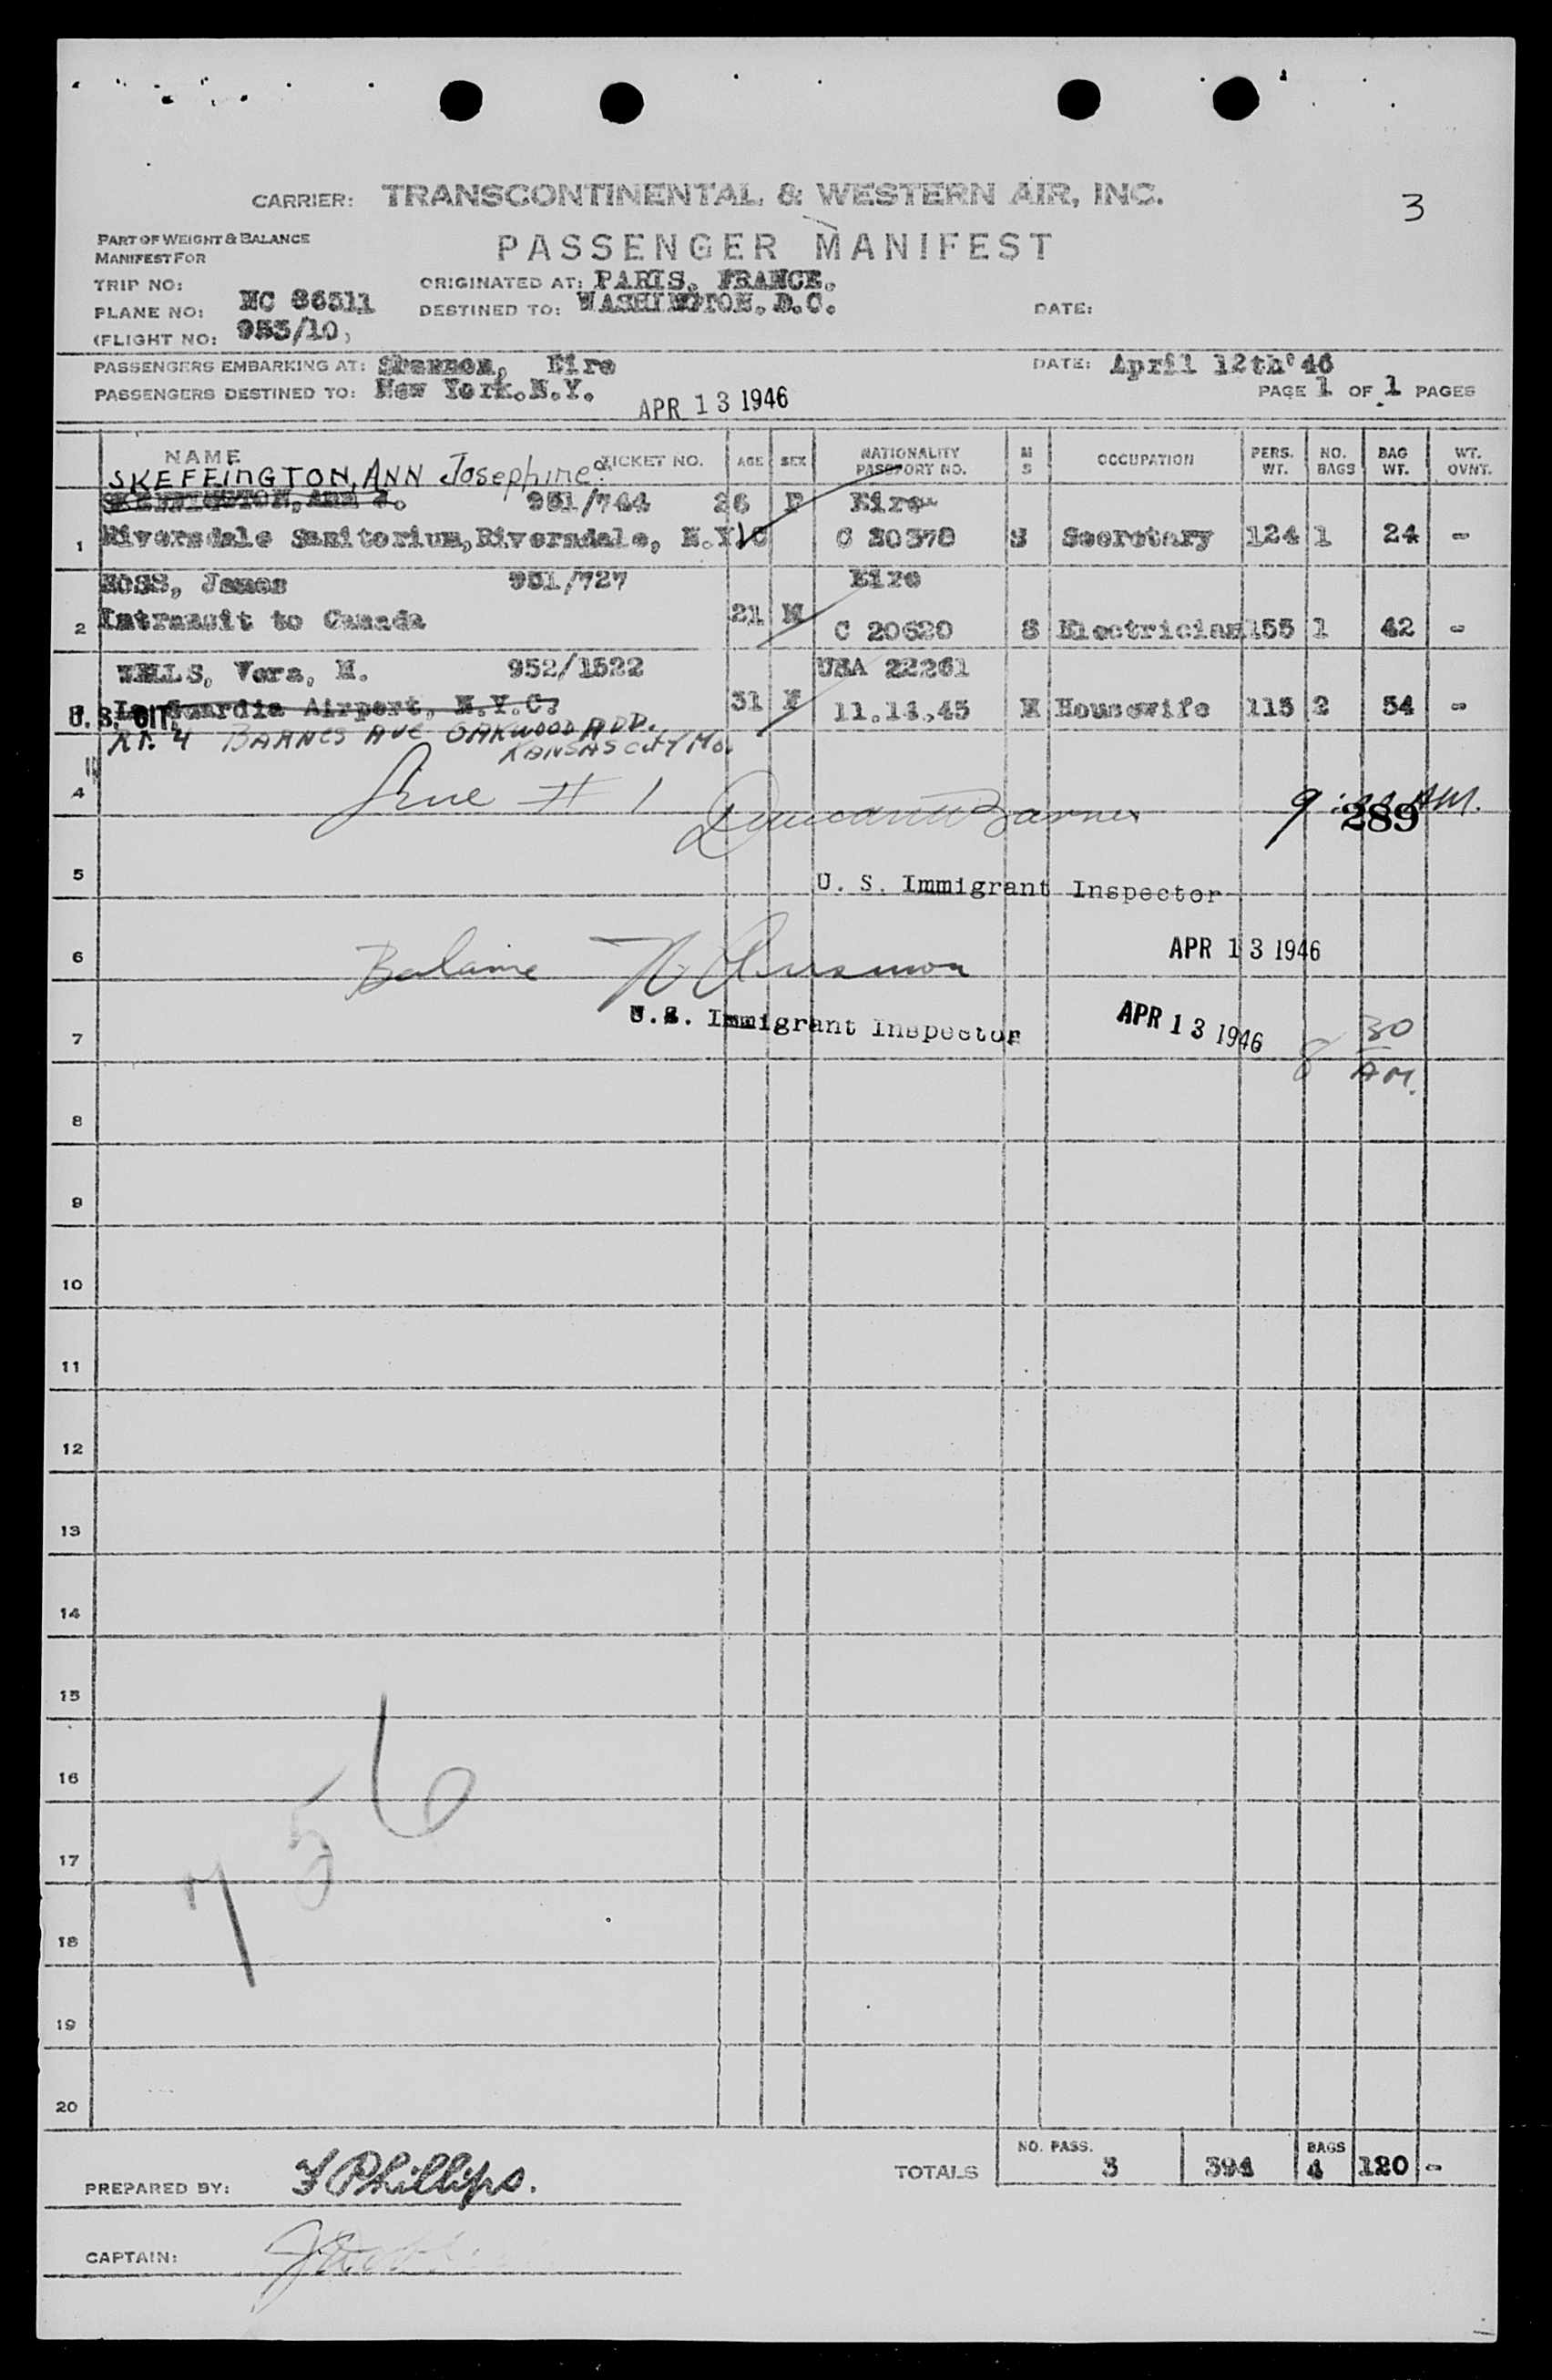 3
CARRIER: TRANSCONTINENTAL & WESTERN AIR, INC.
PART OF WEIGHT & BALANCE
MANIFEST FOR
PASSENGER MANIFEST
TRIP NO: ORIGINATED AT: PARIS, FRANCE.
PLANE NO: NC 86511 DESTINED TO: WASHINGTON, D.C. DATE:
(FLIGHT NO: 953/10)
PASSENGERS EMBARKING AT: Shannon, Eire DATE: April 12th'46
PASSENGERS DESTINED TO: New York.N.Y. APR 13 1946 PAGE 1 OF 1 PAGES
NAME TICKET NO. AGE SEX NATIONALITY PASSPORT NO. M S OCCUPATION PERS. WT. NO. BAGS BAG WT. WT. OVNT.
SKEFFINGTON, ANN Josephine
SKEFFINGTON, ANN J. 951/744 26 F Eire
1 Riversdale Sanitorium, Riversdale, N.Y.C C 20378 S Secretary 124 1 24 -
ROSS, James 951/727 Eire
2 Intransit to Canada 21 M C 20620 S Electrician 155 1 42 -
WELLS, Vera, M. 952/1522 USA 22261
U.S. CIT. La Guardia Airport, N.Y.C. 31 F 11.14.45 M Housewife 115 2 54 -
RT. 4 BARNES AVE OAKWOOD ADD.
KANSAS CITY Mo.
4 Line # 1 9 AM.
289
5 U. S. Immigrant Inspector
6 APR 13 1946
U.S. Immigrant Inspector
7 APR 13 1946 8 30 AM.
8
9
10
11
12
13
14
15
16
17
756
18
19
20
TOTALS NO. PASS. 3 394 BAGS 4 120 -
PREPARED BY: F Phillips.
CAPTAIN: